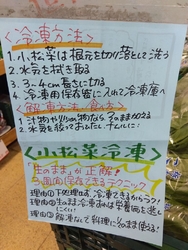 <冷凍方法>
1. 小松菜は根元を切り落として洗う
2. 水気を拭き取る
3. 3~4cm長さに切る
4. 冷凍用保存袋に入れて冷凍庫へ
<解凍方法・食べ方>
1. 汁物や炒め物なら、そのまま加える
2. 水気を絞っておひたし、ナムルに
<小松菜冷凍>
「生のまま」が正解!
理由① 下処理なし 冷凍できるからラク!
理由② 生のまま冷凍すれば栄養価を逃し
にくい
理由③ 解凍なしで料理にそのまま使える!